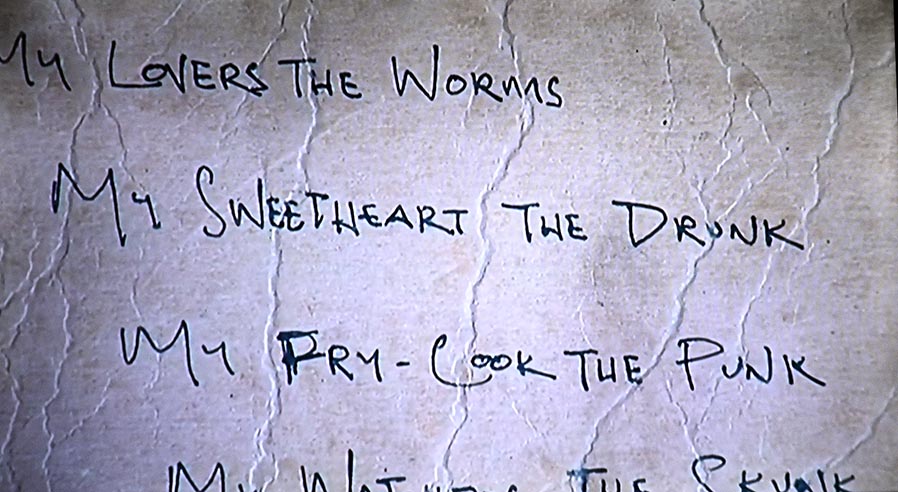 My LOVERS THE WORMS
My SWEETHEART THE DRUNK
My FRY-COOK THE PUNK
My THE SKUNK